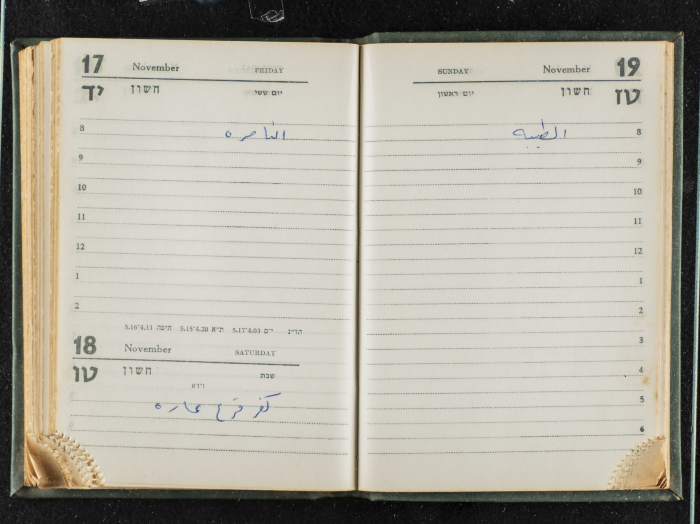 17 November FRIDAY
יד חשון יום ששי
8 الناصره
9
10
11
12
1
2
5.16*4.11 חיפה 5.15*4.20 ת"א 5.17*4.03
18 November SATURDAY
טו חשון שבת
וירא
كفر قرع عاره
SUNDAY November 19
יום ראשון חשון טז
الطيبه 8
9
10
11
12
1
2
3
4
5
6